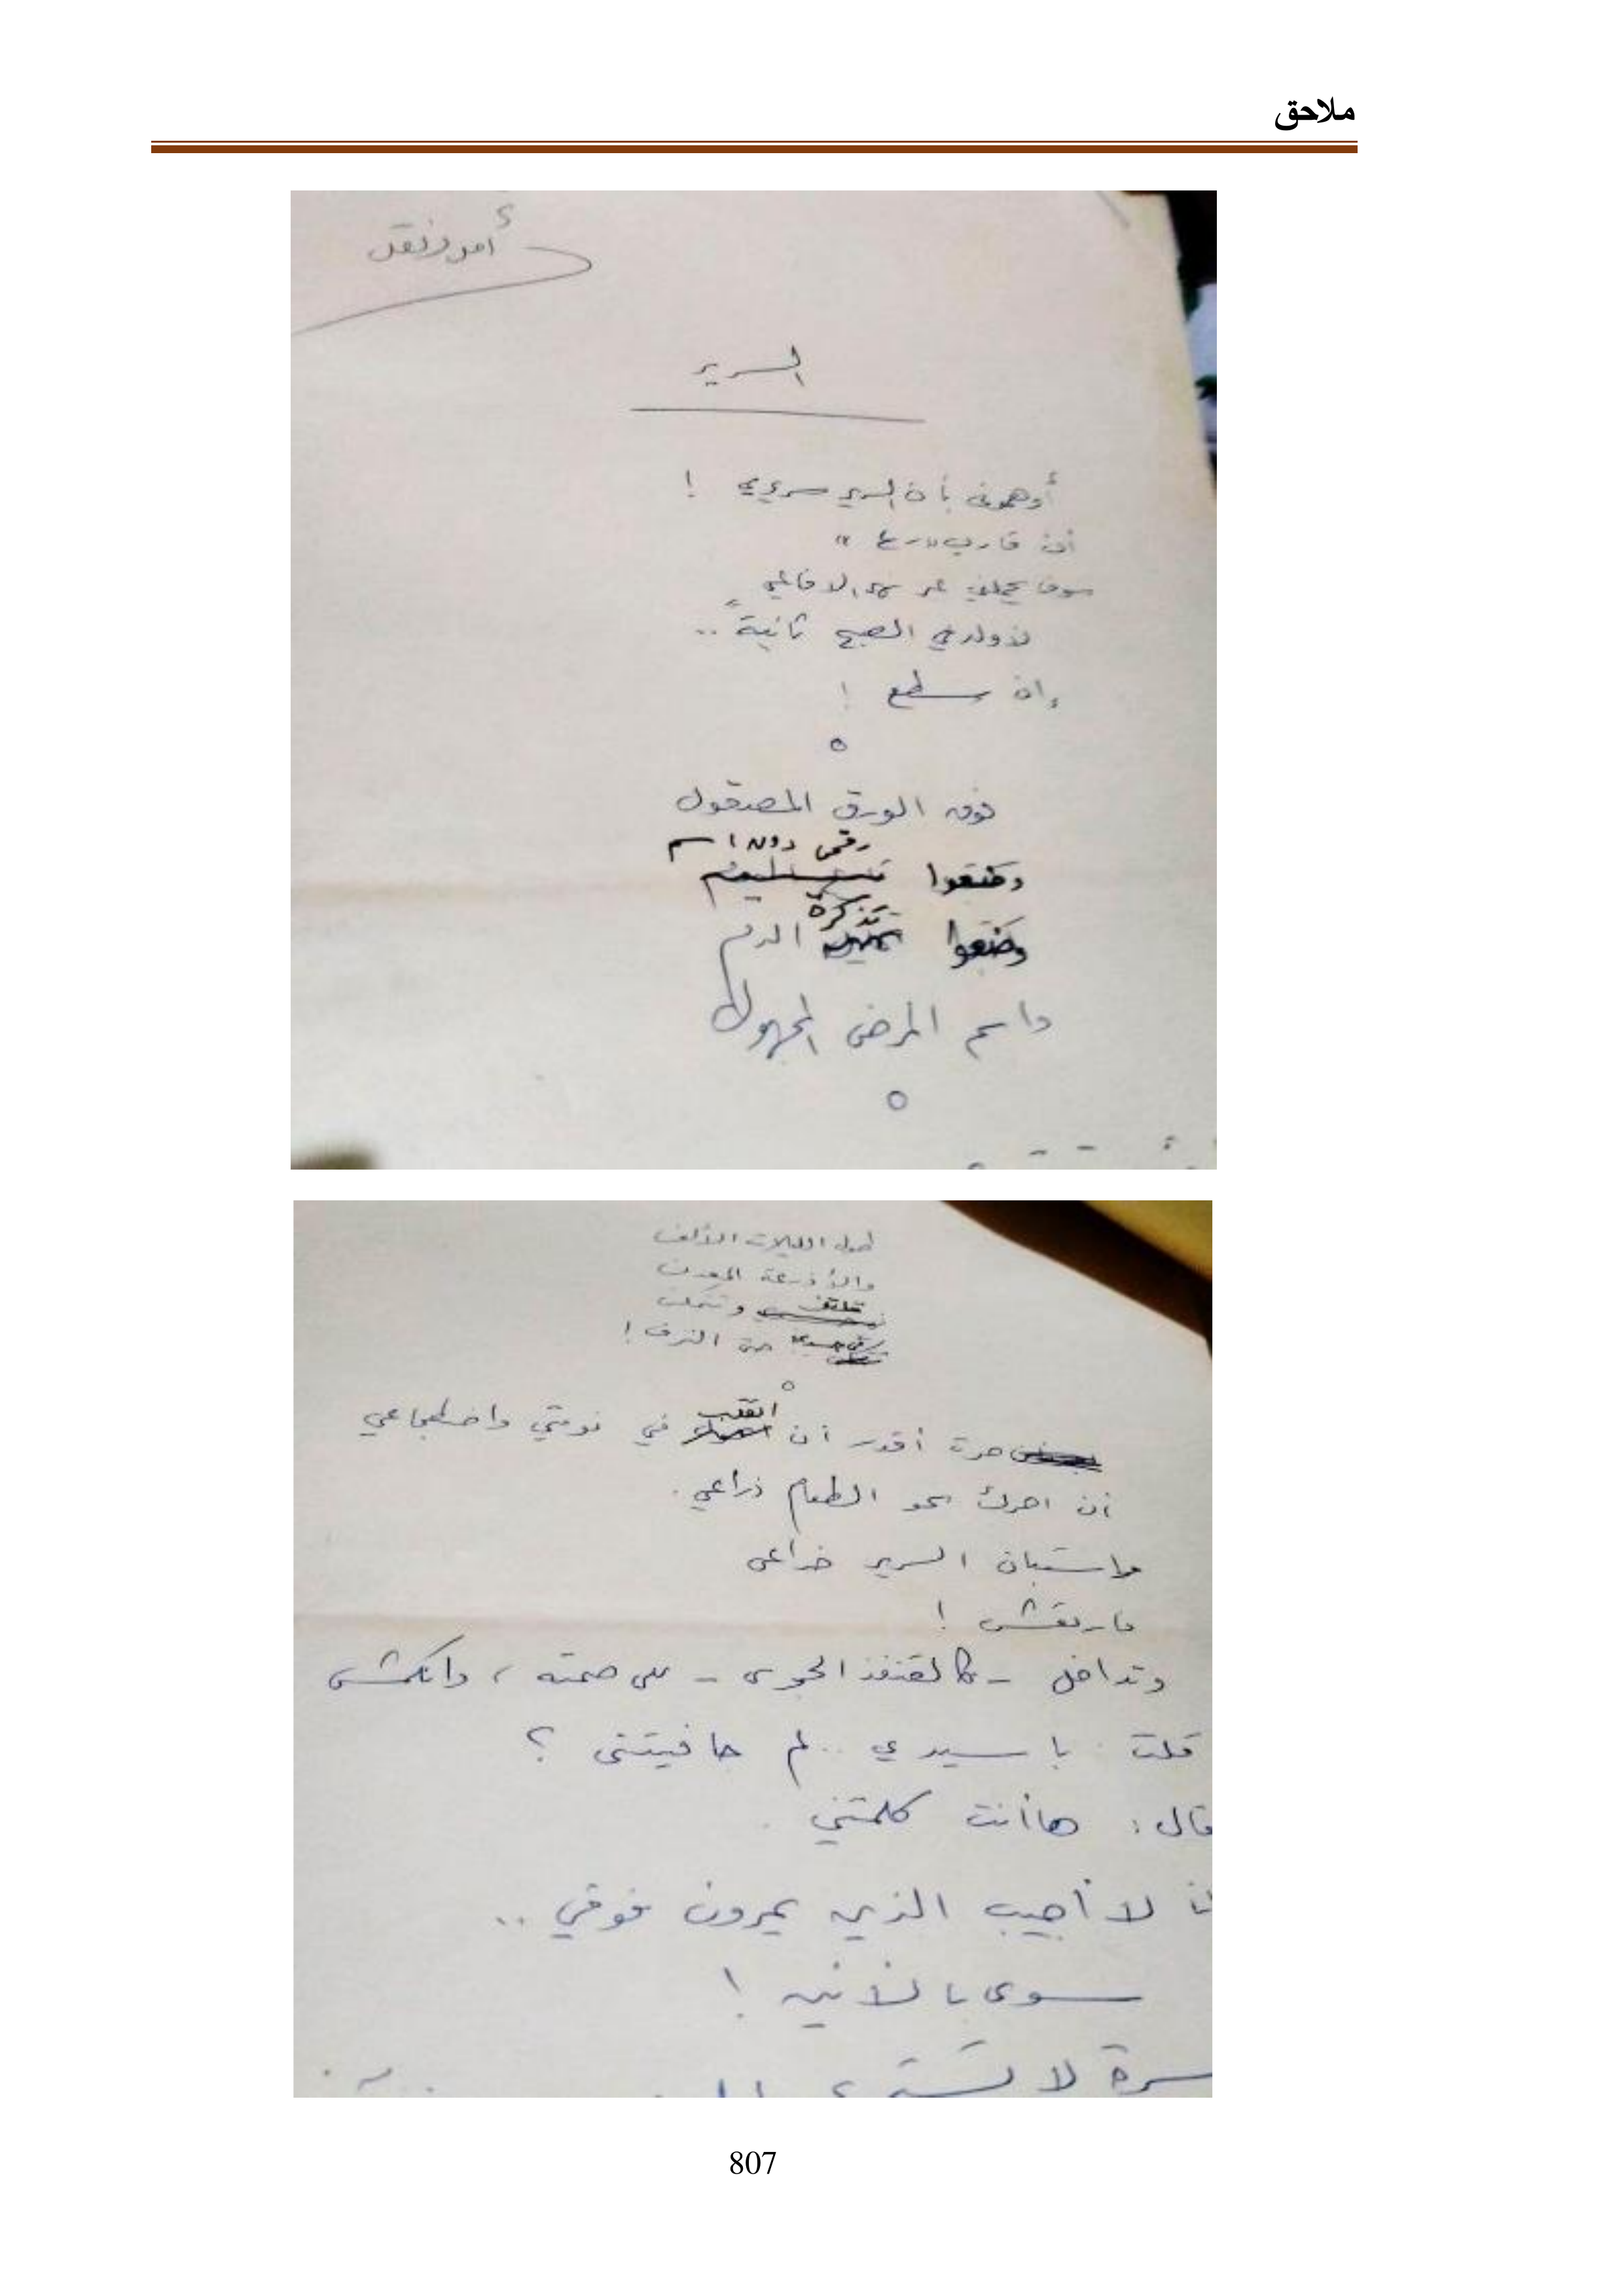 ملاحق
أمل دنقل
السرير
أوهموني بأن السرير سريري !
أن قارب "رع"
سوف يحملني عبر نهر الافاعي
لأولد في الصبح ثانيةً ..
إن سطع !
فوق الورق المصقول
رقمي دون اسم
وضعوا
وضعوا تذكرة الدم
واسم المرض المجهول
طول الليلات الألف
والأذرعة المعدن
تلتف وتتمكن
في جسدي حتى النزف !
صرت أقدر أن اتقلب في نومتي واضطجاعي
أن احرك نحو الطعام ذراعي .
واستبان السرير خداعي
فارتعش !
وتداخل - كالقنفذ الحجرى - على صمته ، وانكمش
قلت : يا سيدي .. لم جافيتنى ؟
قال : ها أنت كلمتني .
لا أجيب الذين يمرون فوقي ..
سوى بالأنين !
سرة لا تستـ
807